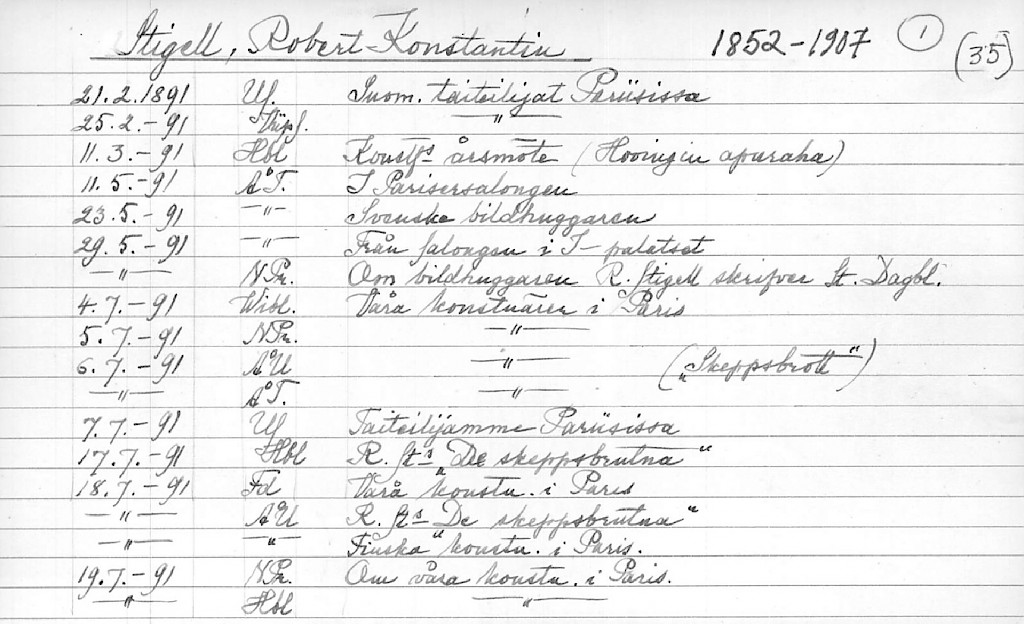 Stigell, Robert Konstantin 1852-1907 1 (35)
21.2.1891 Uf. Suom. taiteilijat Pariisissa
25.2.-91 Viipf. —"—
11.3.-91 Hbl Konstfs årsmöte (Hovingin apuraha)
11.5.-91 ÅT. I Parisersalongen
23.5.-91 —"— Svenske bildhuggaren
29.5.-91 —"— Från salongen i I-palatset
—"— N.Pr. Om bildhuggaren R. Stigell skrifver St. Dagbl.
4.7.-91 Wibl. Våra konstnärer i Paris
5.7.-91 N.Pr. —"—
6.7.-91 ÅU —"— („Skeppsbrott“)
—"— ÅT. —"—
7.7.-91 Uf Taiteilijamme Pariisissa
17.7.-91 Hbl R. Sts „De skeppsbrutna“
18.7.-91 Fd Våra konstn. i Paris
—"— ÅU R. Sts „De skeppsbrutna“
—"— —"— Finska konstn. i Paris.
19.7.-91 N.Pr. Om våra konstn. i Paris.
—"— Hbl —"—